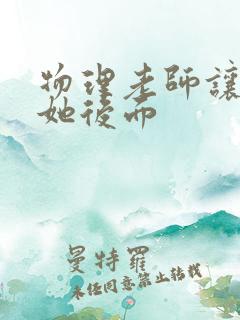 物理老师讓
她後而
曼特羅
未经同意禁止转载